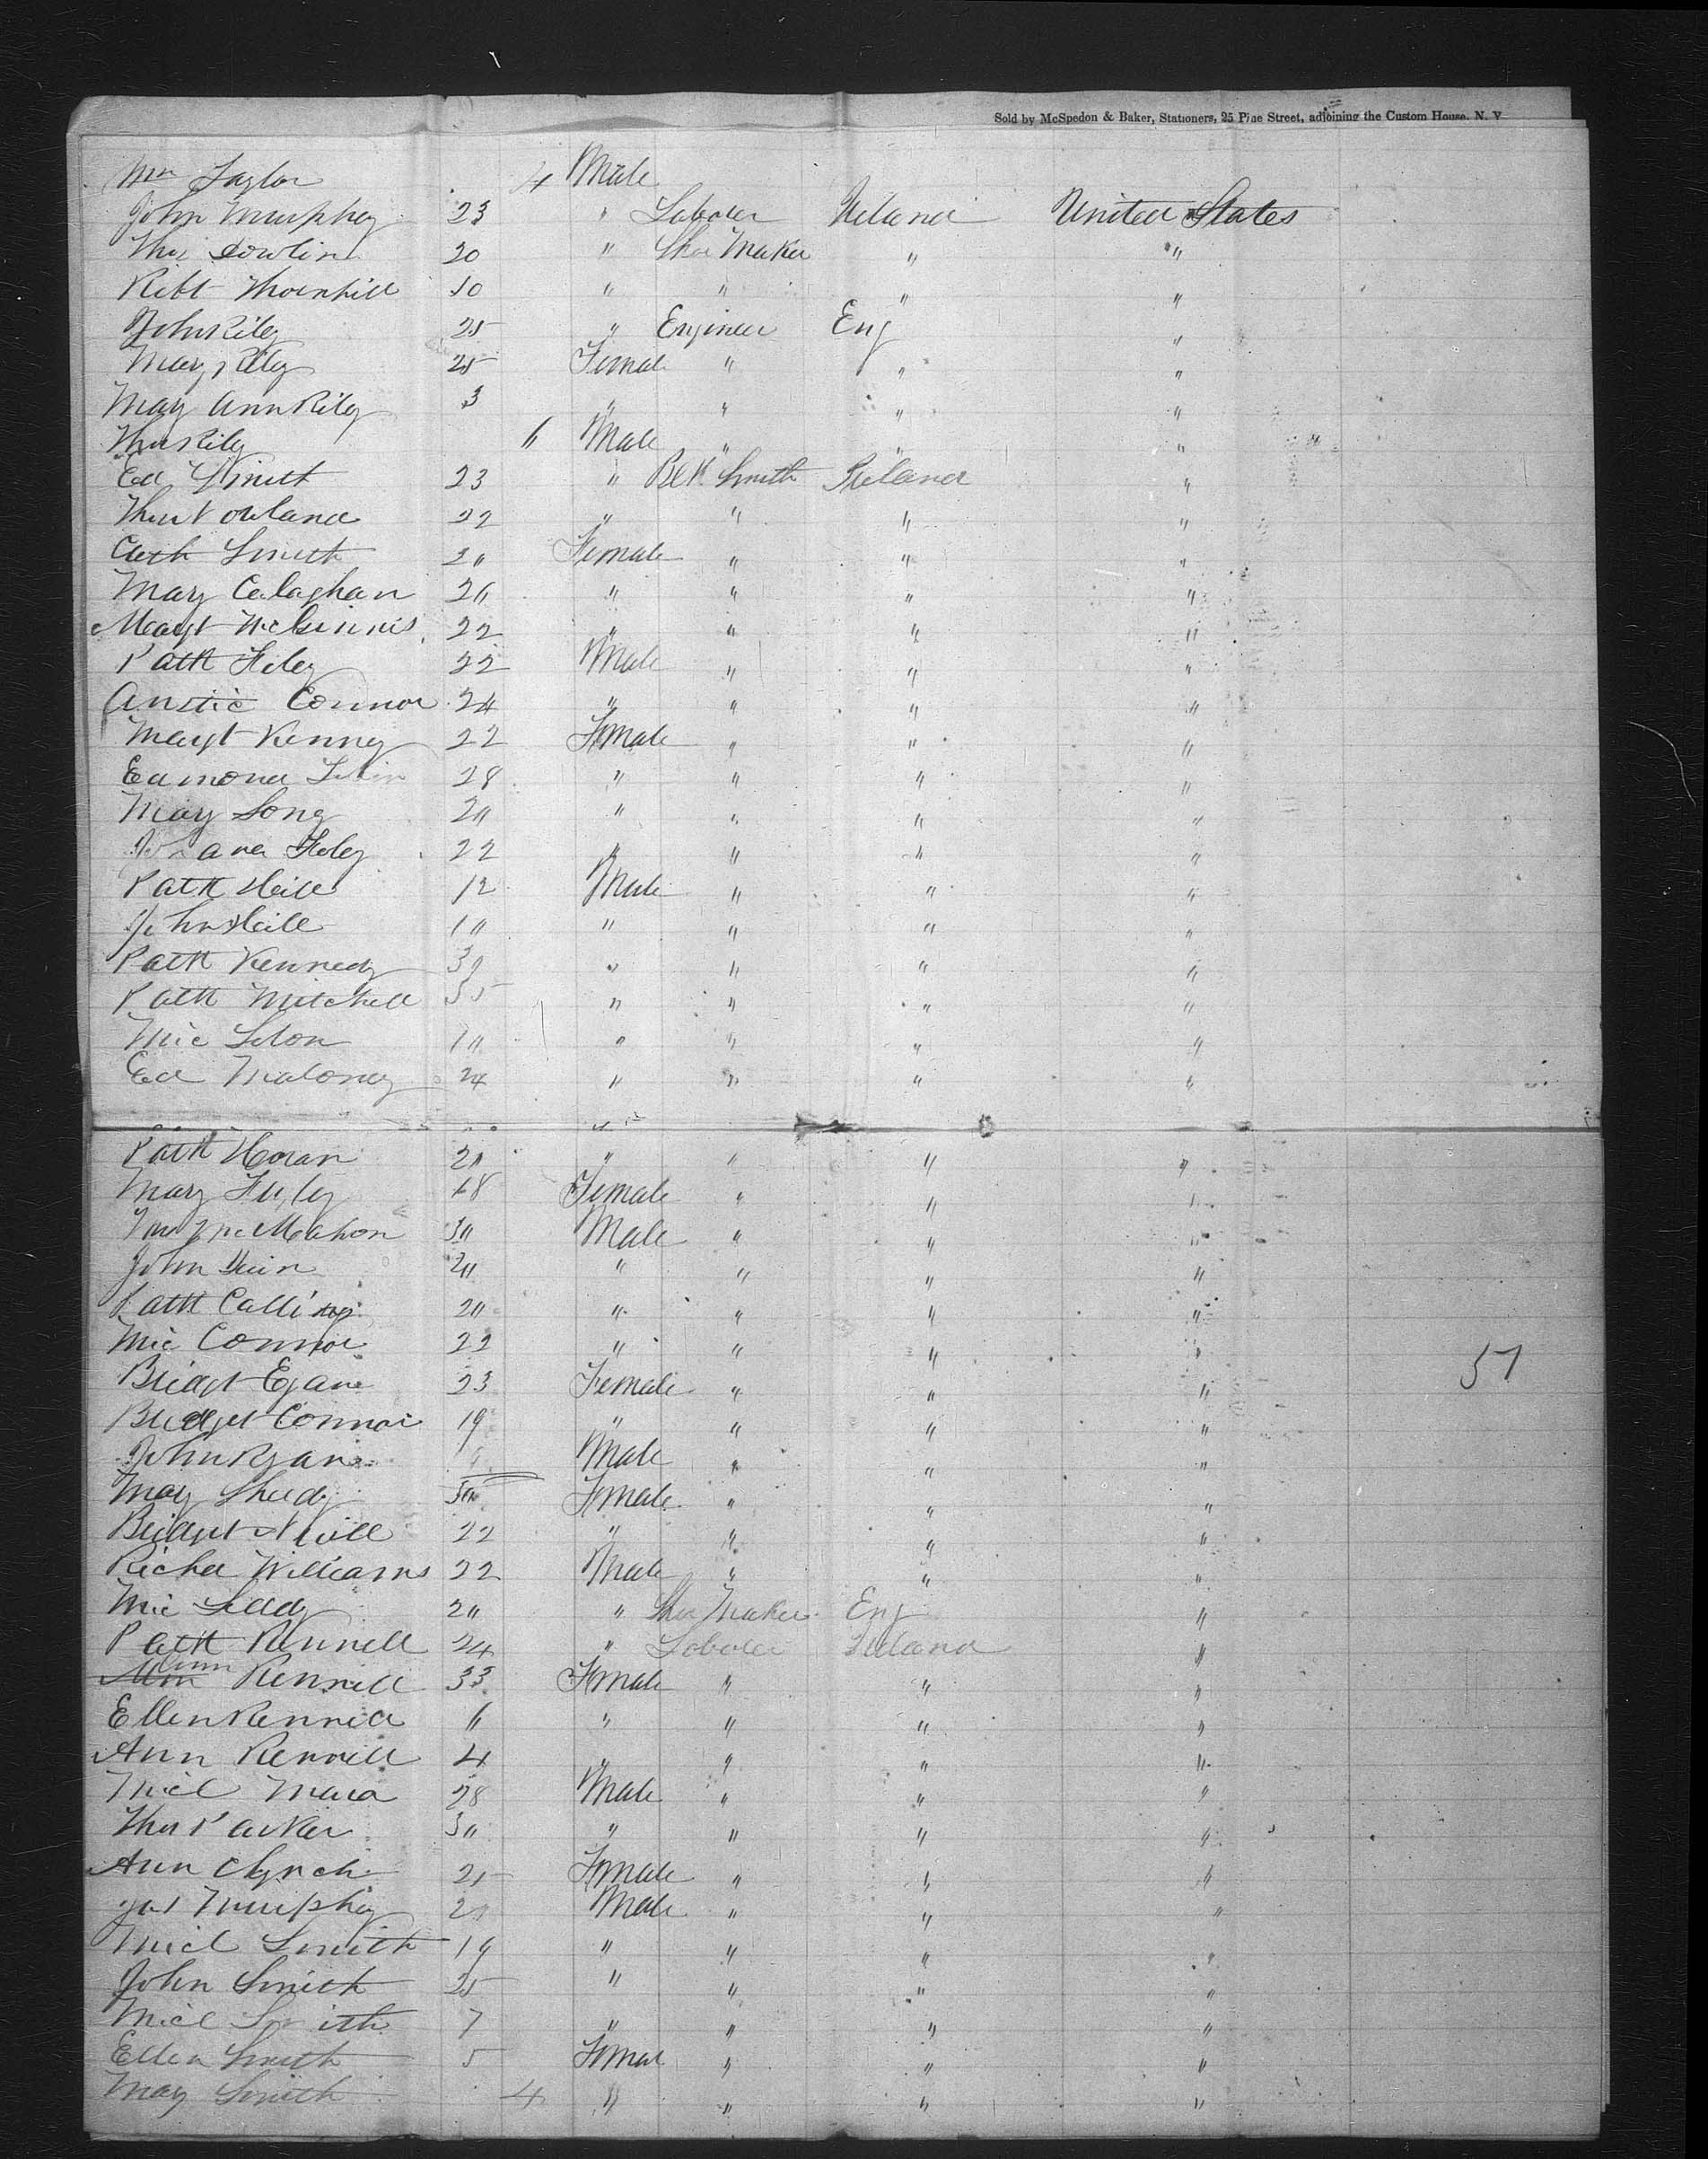 Sold by McSpedon & Baker, Stationers, 25 Pine Street, adjoining the Custom House, N. Y
Wm Taylor 4 Male
John Murphey 23 " Laborer Ireland United States
Thos 20 " Shoe Maker " "
Robt Thornhill 30 " " " "
John Riley 25 " Engineer Eng "
Mary Riley 25 Female " " "
Mary Ann Riley 3 " " " "
Thos Riley 6 Male " " "
Ed Smith 23 " Blk Smith Ireland "
Thos 22 " " " "
Cath Smith 20 Female " " "
Mary Calaghan 20 " " " "
Margt McGinnis 22 " " " "
Patk 22 Male " " "
Connor 24 " " " "
Margt Kenny 22 Female " " "
Edmond 28 " " " "
Mary Long 20 " " " "
Foley 22 " " " "
Patk Heill 12 Male " " "
John Heill 10 " " " "
Patk Kennedy 30 " " " "
Patk Mitchell 35 " " " "
Mic " " " "
Ed Maloney 24 " " " "
Patk Horan 20 " " " "
Mary 18 Female " " "
McMahon 30 Male " " "
John 20 " " " "
Patk 20 " " " "
Mic Connor 22 " " " "
57
Bridgt Egan 23 Female " " "
Bridget Connor 19 " " " "
John Ryan Male " " "
Mary Sheedy 30 Female " " "
Bridgt 22 " " " "
Richd Williams 22 Male " " "
Mic Leddy 20 " Shoe Maker Eng "
Patk Rennell 24 " Laborer Ireland "
Rennell 33 Female " " "
Ellen Rennell 6 " " " "
Ann Rennell 4 " " " "
Micl Mara 28 Male " " "
Thos Parker 30 " " " "
Ann Clynch 25 Female " " "
Jas Murphy 20 Male " " "
Micl Smith 19 " " " "
John Smith 25 " " " "
Micl Smith 7 " " " "
Ellen Smith 5 Femal " " "
Mary Smith 4 " " " "